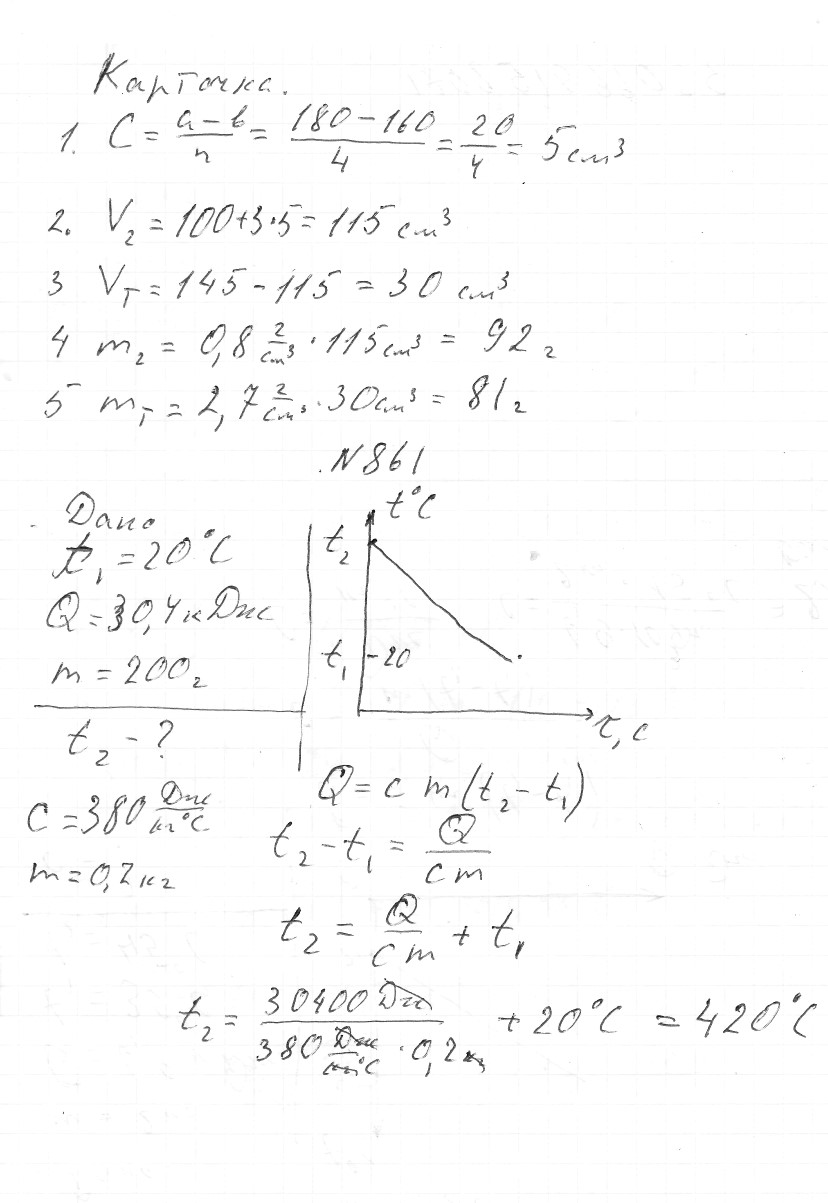 Карточка.
1. C = (a-b)/n = (180-160)/4 = 20/4 = 5 см³
2. V₂ = 100+3·5 = 115 см³
3 Vт = 145-115 = 30 см³
4 m₂ = 0,8 г/см³ · 115 см³ = 92 г
5 mт = 2,7 г/см³ · 30 см³ = 81 г
N 861
Дано
t₁ = 20°C
Q = 30,4 кДж
m = 200 г
t₂ - ?
C = 380 Дж/кг°C
m = 0,2 кг
t°C
t₂
t₁ 20
τ, c
Q = c m (t₂ - t₁)
t₂ - t₁ = Q/cm
t₂ = Q/cm + t₁
t₂ = 30400 Дж/(380 Дж/кг°C · 0,2 кг) + 20°C = 420°C